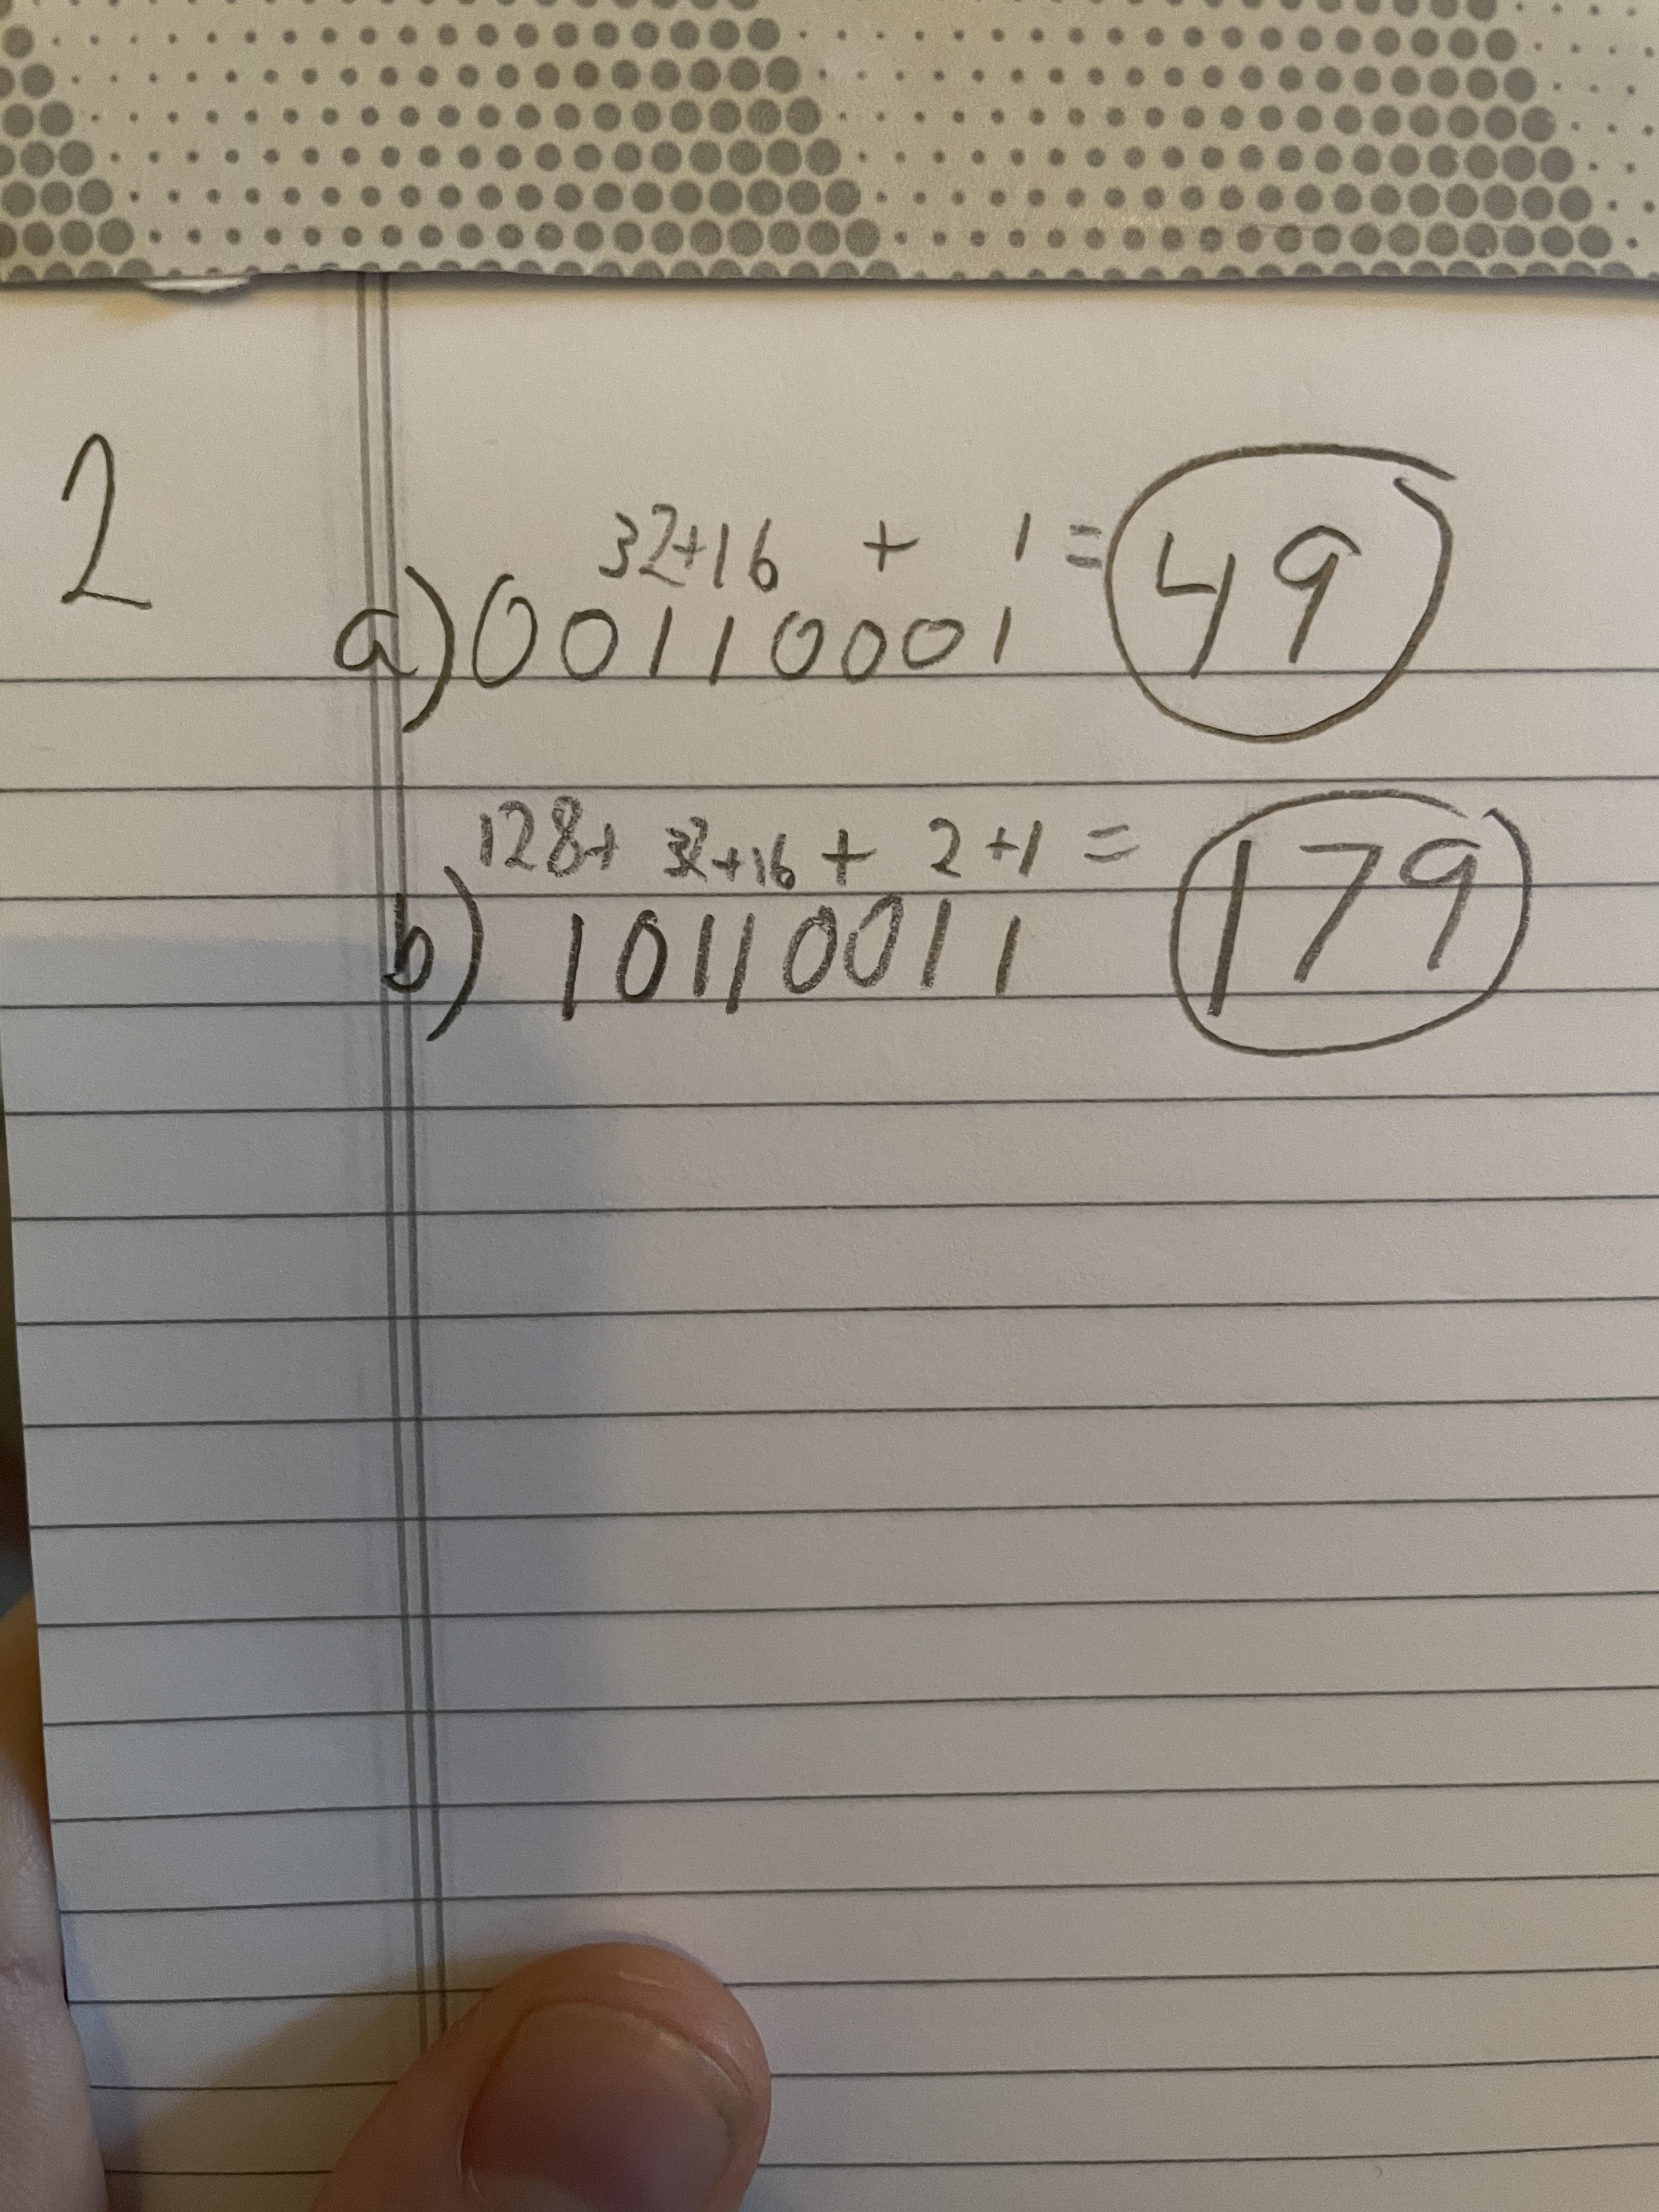 2
32+16 + 1 = 49
a) 00110001
128+ 32+16 + 2+1 = 179
b) 10110011